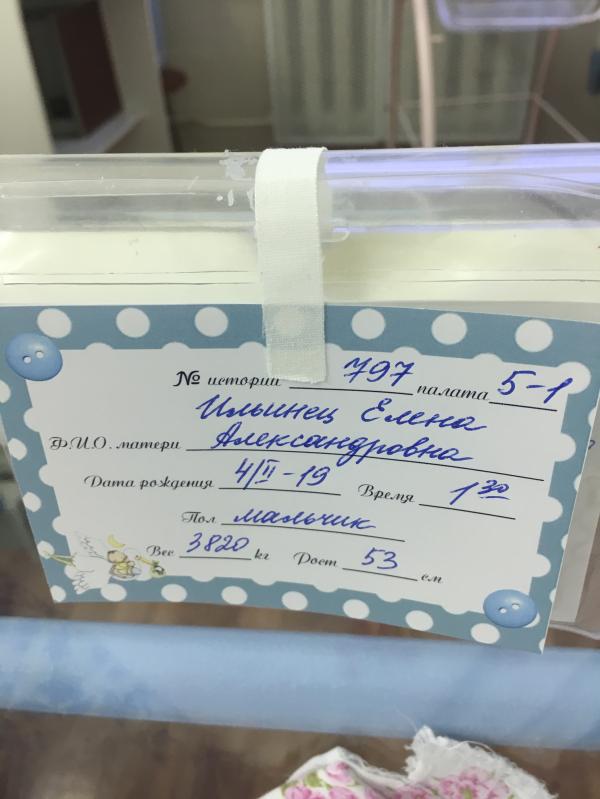 № истории 797 палата 5-1
Ильинец Елена
Ф.И.О. матери Александровна
Дата рождения 4/II-19 Время 1 30
Пол мальчик
Вес 3820 кг Рост 53 см